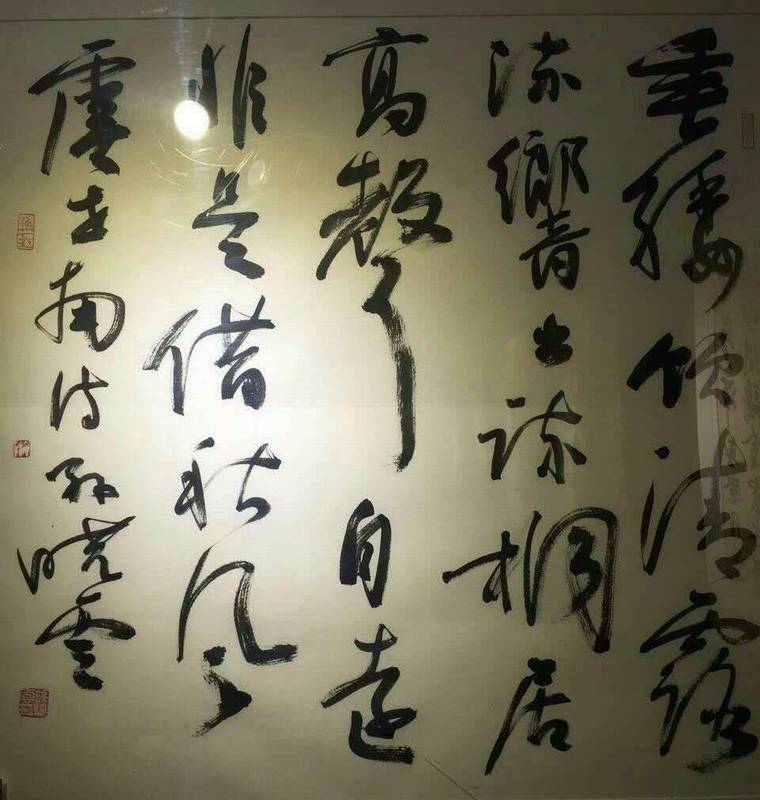 垂緌飲清露
流響出疏桐居
高聲自遠
非是借秋風
虞世南詩孫曉雲